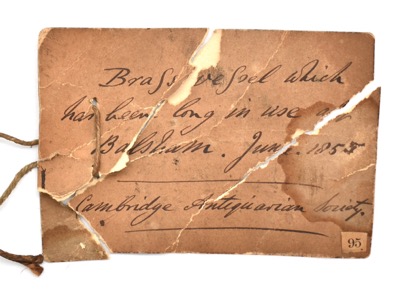 Brass vessel which
has been long in use at
Balsham. June. 1855
Cambridge Antiquarian Society.
95